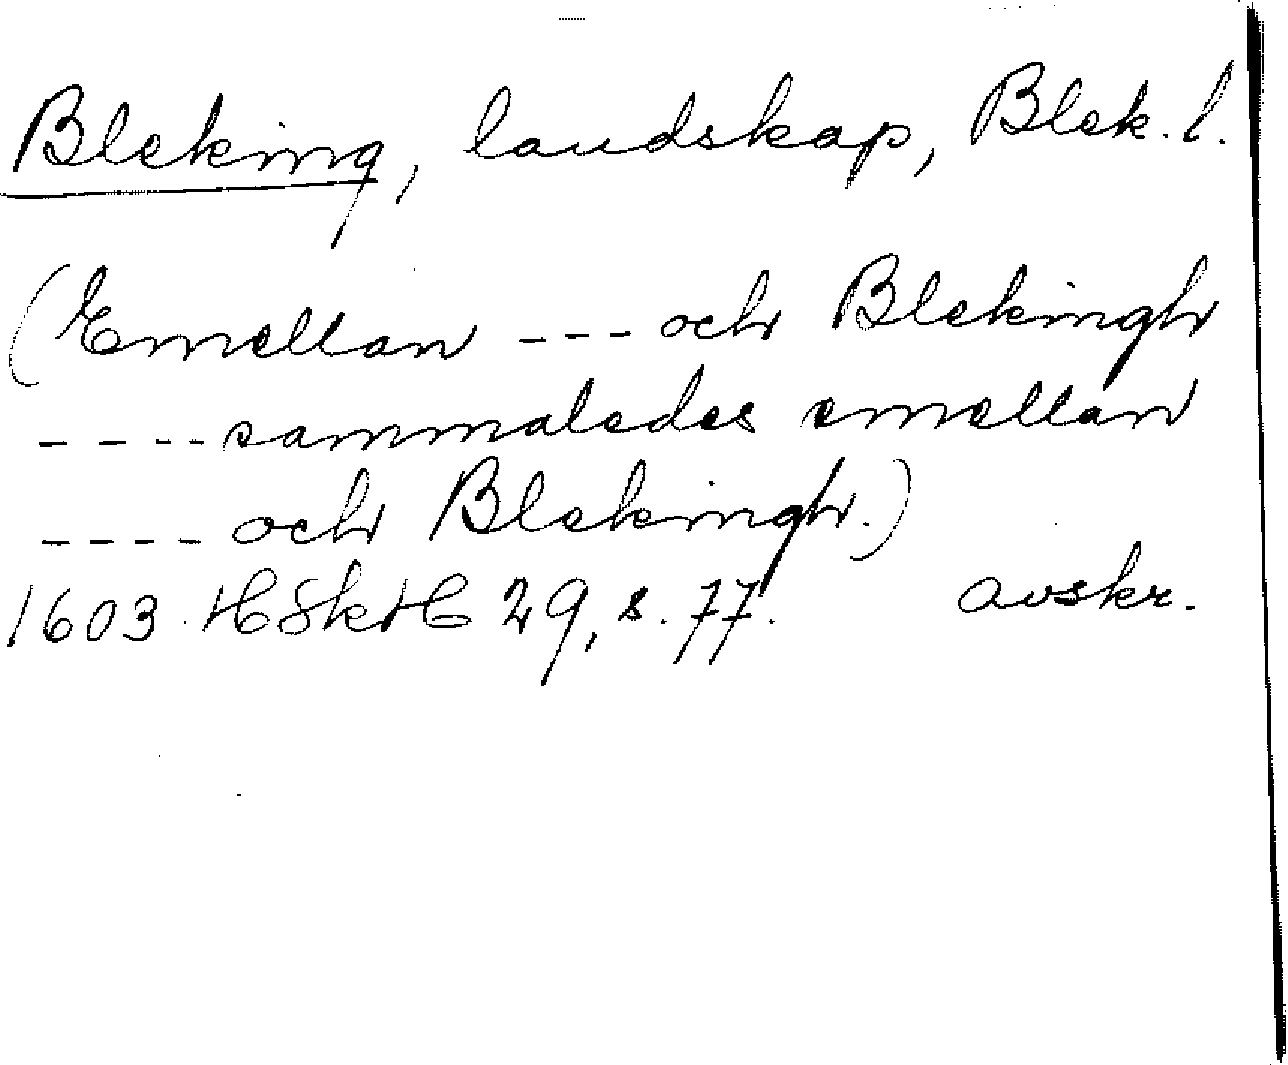 Bleking, landskap, Blek. l.
(Emellan --- och Blekingh
---- sammaledes emellan
---- och Blekingh.)
1603 HSkH 29, s. 77. avskr.